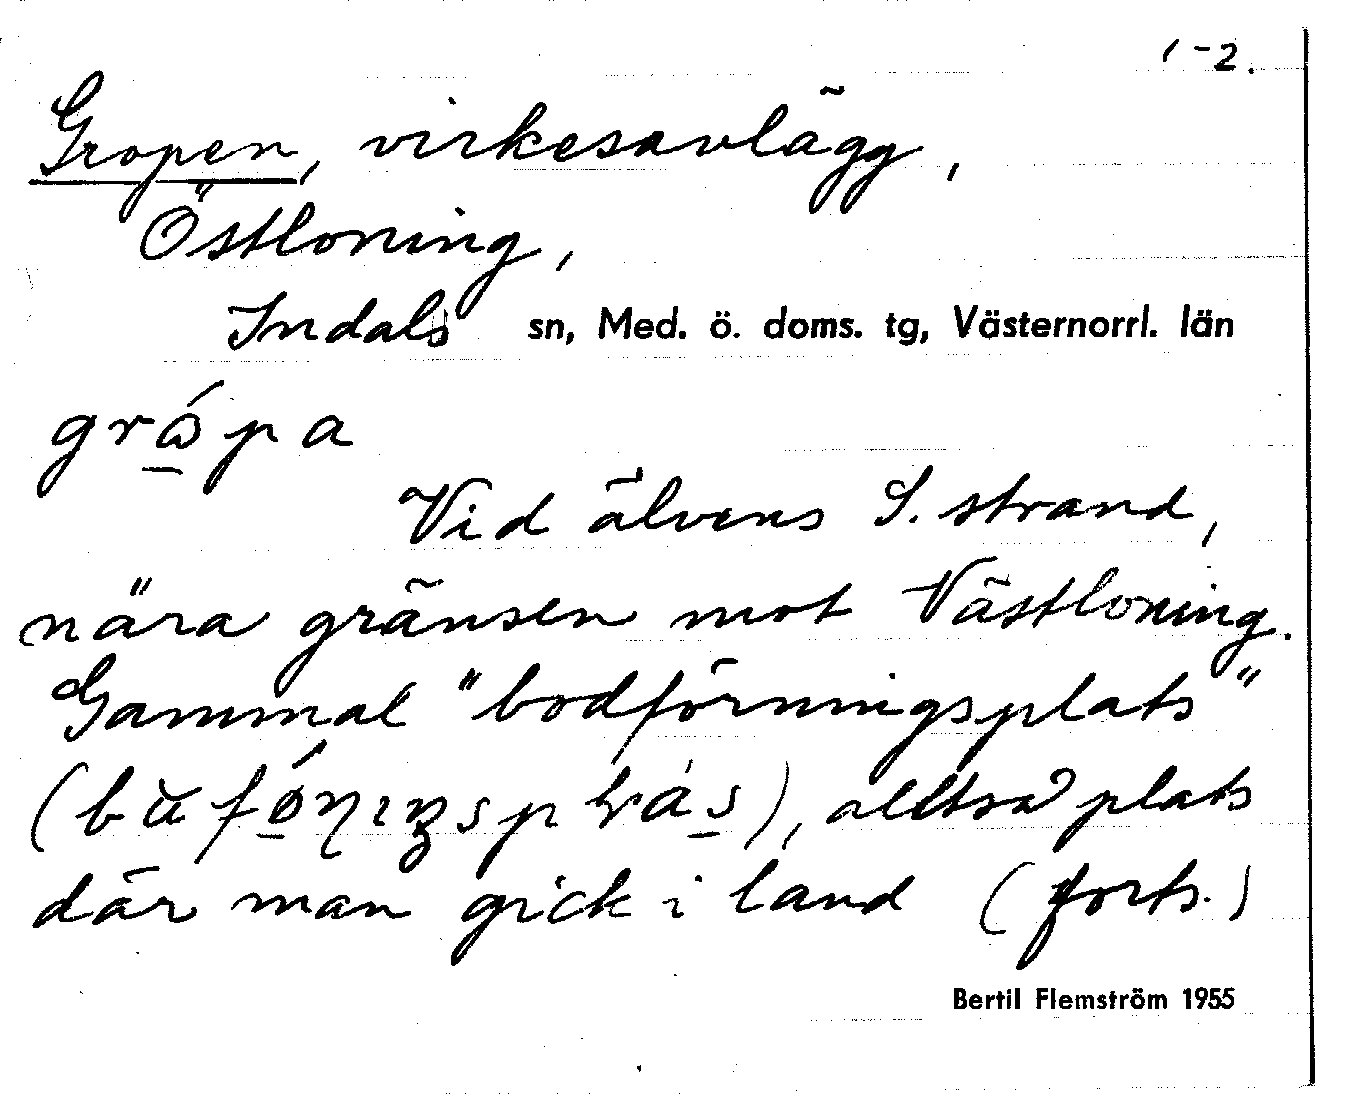 1-2.
Gropen, virkesavlägg,
Östloning,
Indals sn, Med. ö. doms. tg, Västernorrl. län
Vid älvens S. strand,
nära gränsen mot Västloning.
Gammal "bodförningsplats"
alltså plats
där man gick i land (forts.)
Bertil Flemström 1955